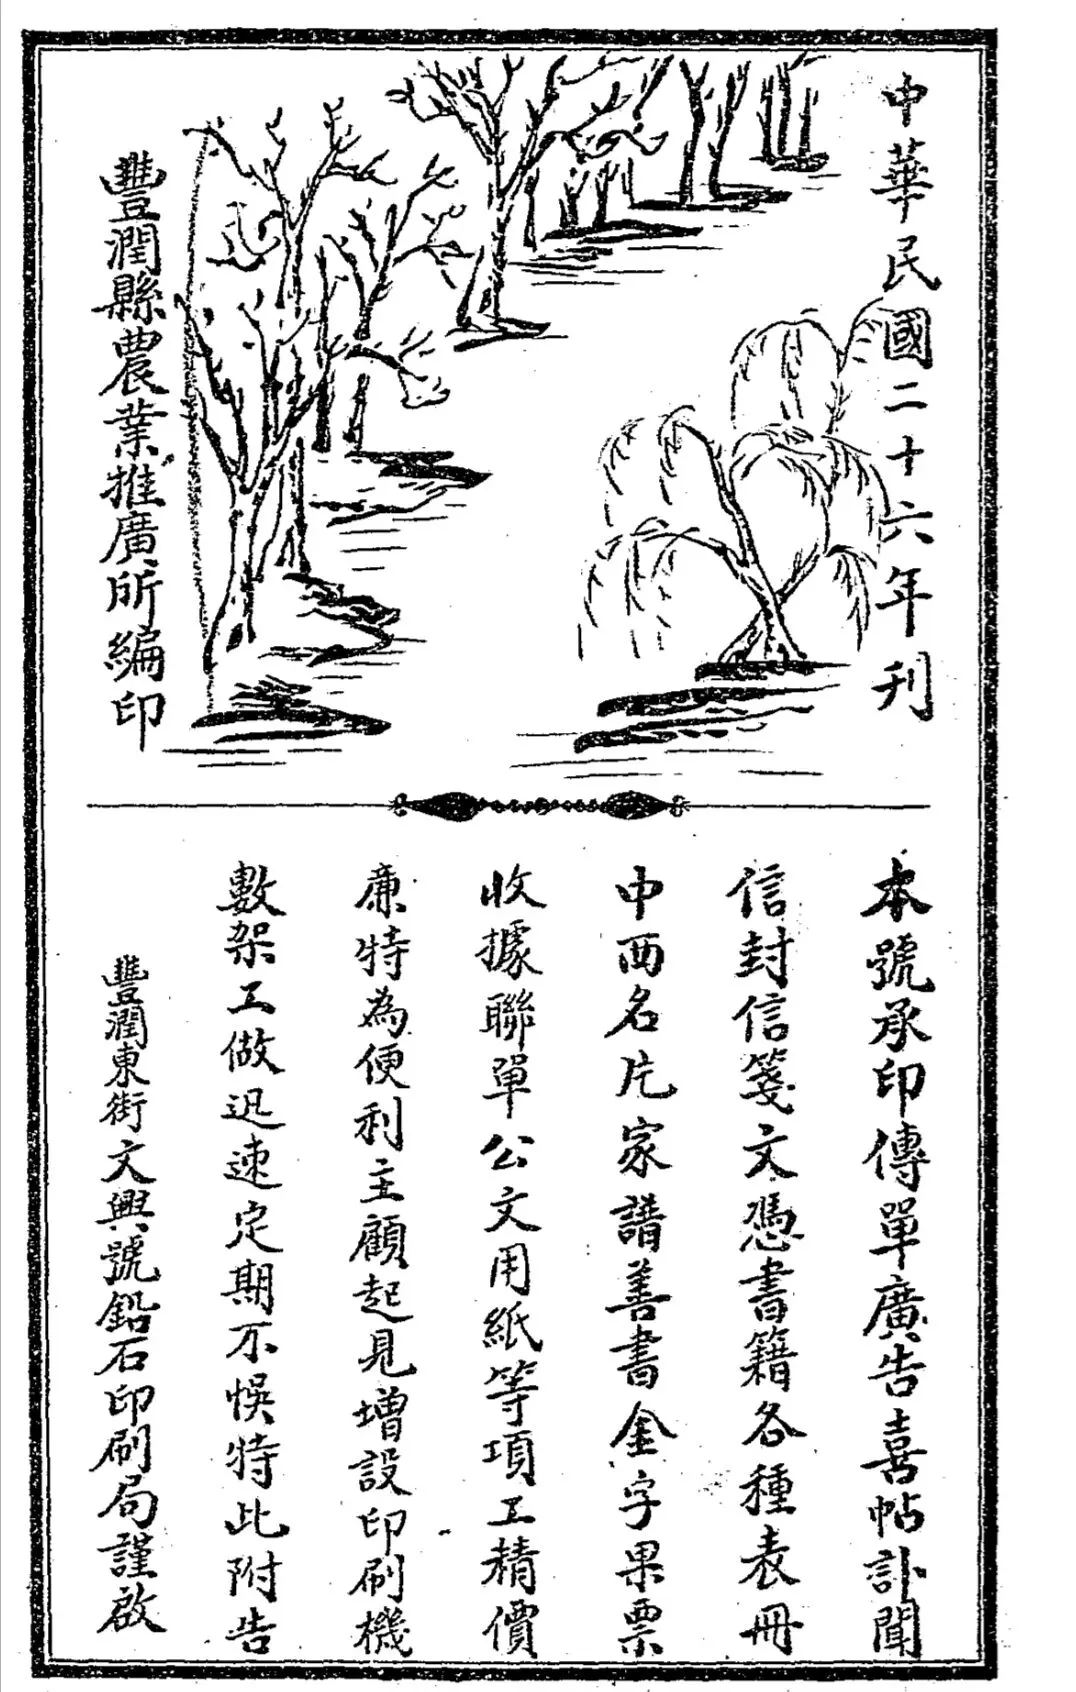 中華民國二十六年刊
豐潤縣農業推廣所編印
本號承印傳單廣告喜帖訃聞
信封信箋文憑書籍各種表冊
中西名片家譜善書金字果票
收據聯單公文用紙等項工精價
廉特為便利主顧起見增設印刷機
數架工做迅速定期不悞特此附告
豐潤東街文興號鉛石印刷局謹啟